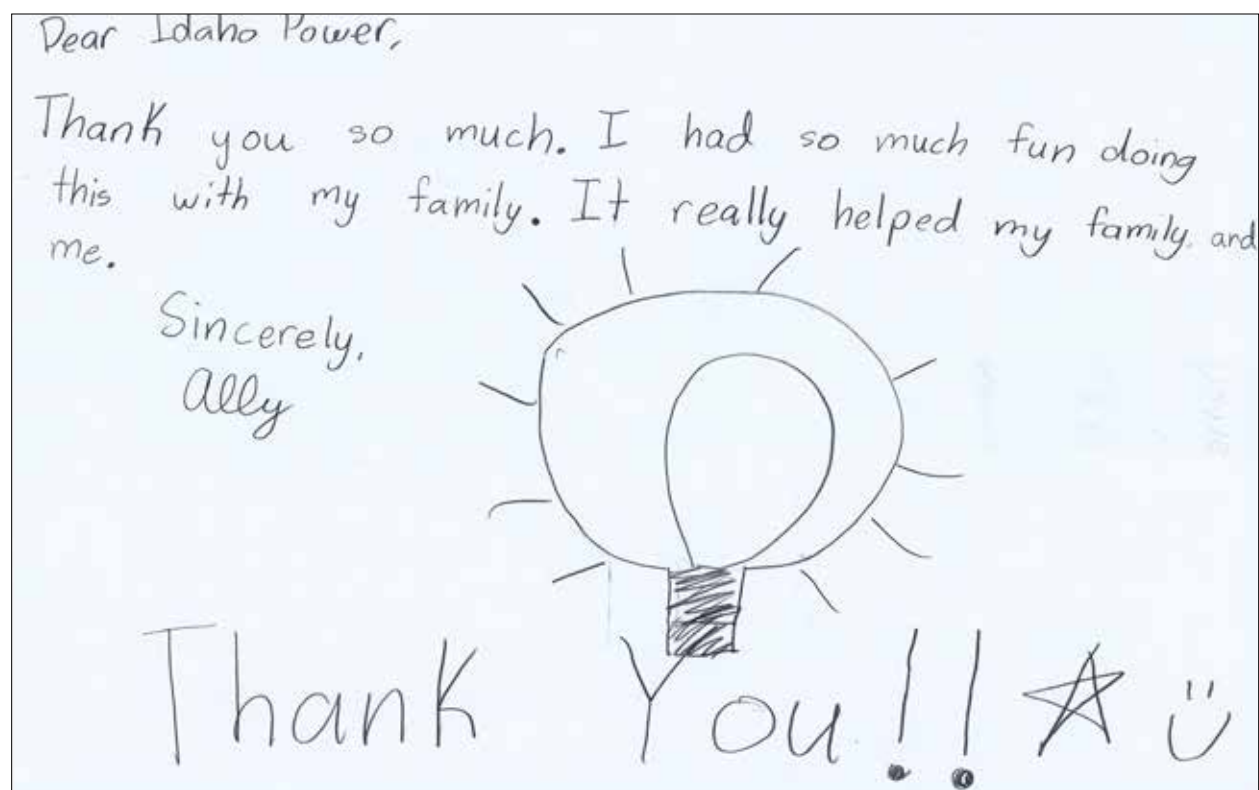 Dear Idaho Power,
Thank you so much. I had so much fun doing
this with my family. It really helped my family and
me.
Sincerely,
Ally
Thank You!!